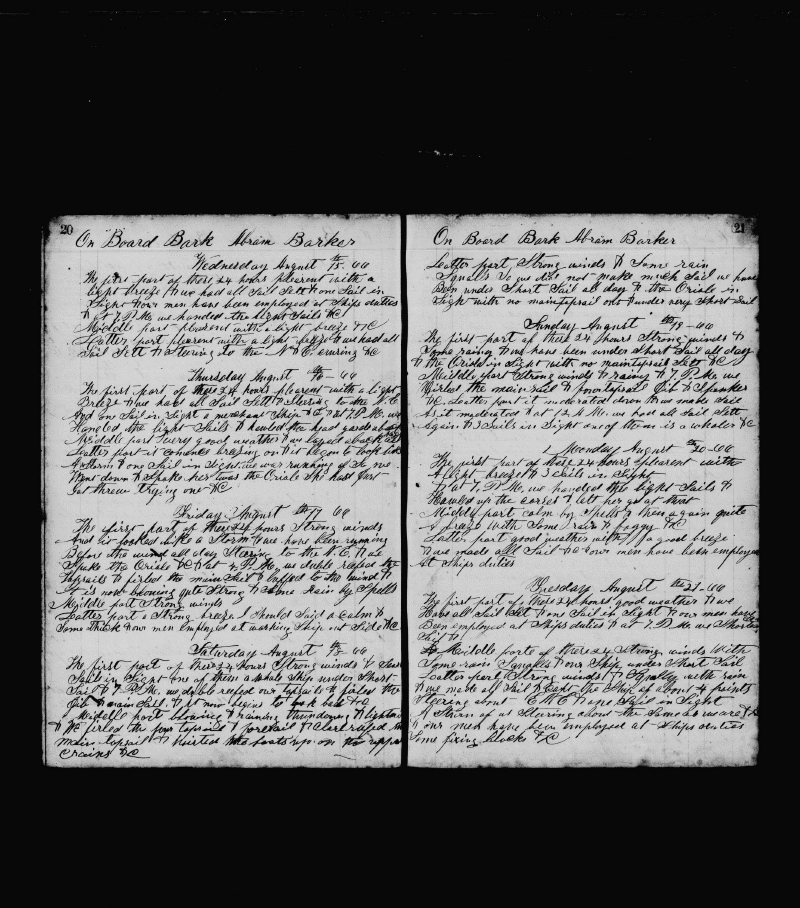 20
On Board Bark Abram Barker
Wednesday August th 15. 66
The first part of these 24 hours plesent with a
Light Breeze & we had all Sail Sett & one Sail in
Sight & our men have been employed at Ships duties
& at 7. P.M. we handed the light Sails &C
Middle part plesent with a light breeze & &C
Latter part plesent with a light breeze & we had all
Sail Sett & Stering to the N. E. cruring &C
Thursday August th 16 66
The first part of these 24 hours plesent with a light
Breeze & we had all Sail Sett & Steering to the N. E.
And one Sail in Sight a merchant Ship &C & at 7. P.M. we
Handed the light Sails & hauled the head yards aback
Middle part very good weather & we layed aback
Latter part it comence breezing on & it begon to look like
A Storm & one Sail in Sight, we was running off So we
Went down & Spoke her was the Oriole She hast just
Got threw trying out &C
Friday August th 17 66
The first part of these 24 hours Strong winds
And looked like a Storm & we have been running
Before the wind all day Steering to the N. E. & we
Spoke the Oriole &C & at 4 P.M. we double reefed the
topsails & firled the main Sail & luffed to the wind &
It is now blowing quite Strong & Some Rain by Spells
Middle part Strong winds
Latter part a Strong breeze I Should Said a calm &
Some thick & our men employed at working Ship out Side &C
Saturday August th 18 66
The first part of these 24 hours Strong winds &
Sails in Sight one of them a whale Ship under Short
Sail & 7. P.M. we double reefed our topsails & firled the
Jib & main Sail. & it now begins to look bad &C
Middle part blowing & raining thundering & lightning
& We firled the four topsail & foresail & close reefed the
main topsail & hoisted the boats up on the upper
Crains &C
21
On Board Bark Abram Barker
Latter part Strong winds & Some rain
Squalls So we did not make much Sail we have
Ben under Short Sail all day & the Oriole in
Sight with no maintopsail out & under very Short Sail
Sunday August th 19 - 66
The first part of these 24 hours Strong winds &
Some raining & we have been under Short Sail all day
& the Oriole in Sight with no maintopsail Sett &C
Middle part Strong winds & raing & 7 P.M. we
Firled the main Sail & foretopsail Jib & Spanker
&C Latter part it moderated down & we made Sail
As it moderated & at 12. M. we had all Sail Sett
Again & 3 Sails in Sight one of them is a whaler &C
Monday August th 20 - 66
The first part of these 24 hours plesent with
A light breeze & 3 Sails in Sight
& at 7. P.M. we handed the light Sails &
Hauled up the corses & left her go at that
Middle part calm by Spells & then again quite
A breeze With Some rain & foggy &C
Latter part good weather with a good breeze
& we made all Sail &C & our men have been employed
At Ships duties
Tuesday August th 21 - 66
The first part of these 24 hours good weather & we
Have all Sail Set & one Sail in Sight & our men have
Ben employed at Ships duties & at 7. P.M. we Shorten
Sail &
Middle parte of these 24 Strong winds With
Some rain Squales & our Ship under Short Sail
Latter part Strong winds & Squaly with rain
& we made all Sail & kept the Ship of about 4 points
Steering about E.N.E. & one Sail in Sight
A Starn of us Steering about the Same as we are &C
& our men have been employed at Ships duties
Some fixing blocks &C